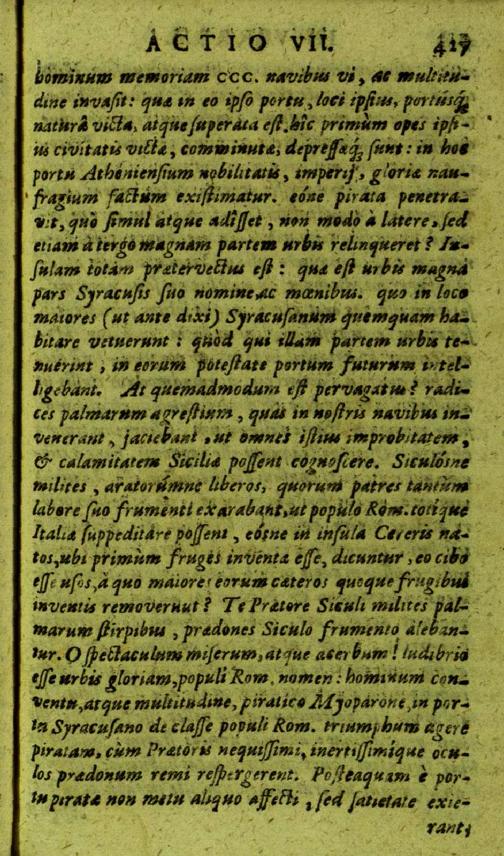 ACTIO VII. 417
hominum memoriam CCC. navibus vi, ac multitu-
dine invasit: quæ in eo ipso portu, loci ipsius, portúsq;
naturâ victa, atque superata est. hîc primùm opes ipsi-
us civitatis victæ, comminutæ, depressæq; sunt: in hoc
portu Atheniensium nobilitatis, imperij, gloriæ nau-
fragium factum existimatur. eóne pirata penetra-
vit, quò simul atque adîsset, non modò à latere, sed
etiam à tergo magnam partem urbis relinqueret? In-
sulam totam prætervectus est: quæ est urbis magna
pars Syracusis suo nomine, ac mœnibus. quo in loco
maiores (ut ante dixi) Syracusanum quemquam ha-
bitare vetuerunt: quòd qui illam partem urbis te-
nuérint, in eorum potestate portum futurum intel-
ligebant. At quemadmodum est pervagatus? radi-
ces palmarum agrestium, quas in nostris navibus in-
venerant, jaciebant, ut omnes istius improbitatem,
& calamitatem Siciliæ possent cognoscere. Siculósne
milites, aratorúmne liberos, quorum patres tantùm
labore suo frumenti exarabant, ut populo Rom. totíque
Italiæ suppeditare possent, eósne in insula Cereris na-
tos, ubi primùm fruges inventæ esse, dicuntur, eo cibo
esse usos, à quo maiores eorum cæteros quoque frugibus
inventis removerunt? Te Prætore Siculi milites pal-
marum stirpibus, prædones Siculo frumento aleban-
tur. O spectaculum miserum, atque acerbum! ludibrio
esse urbis gloriam, populi Rom. nomen: hominum con-
ventu, atque multitudine, piratico Myoparone, in por-
tu Syracusano de classe populi Rom. triumphum agere
piratam, cùm Prætoris nequissimi, inertissimique ocu-
los prædonum remi respergerent. Posteaquam è por-
tu piratæ non metu aliquo affecti, sed satietate exie-
rant;